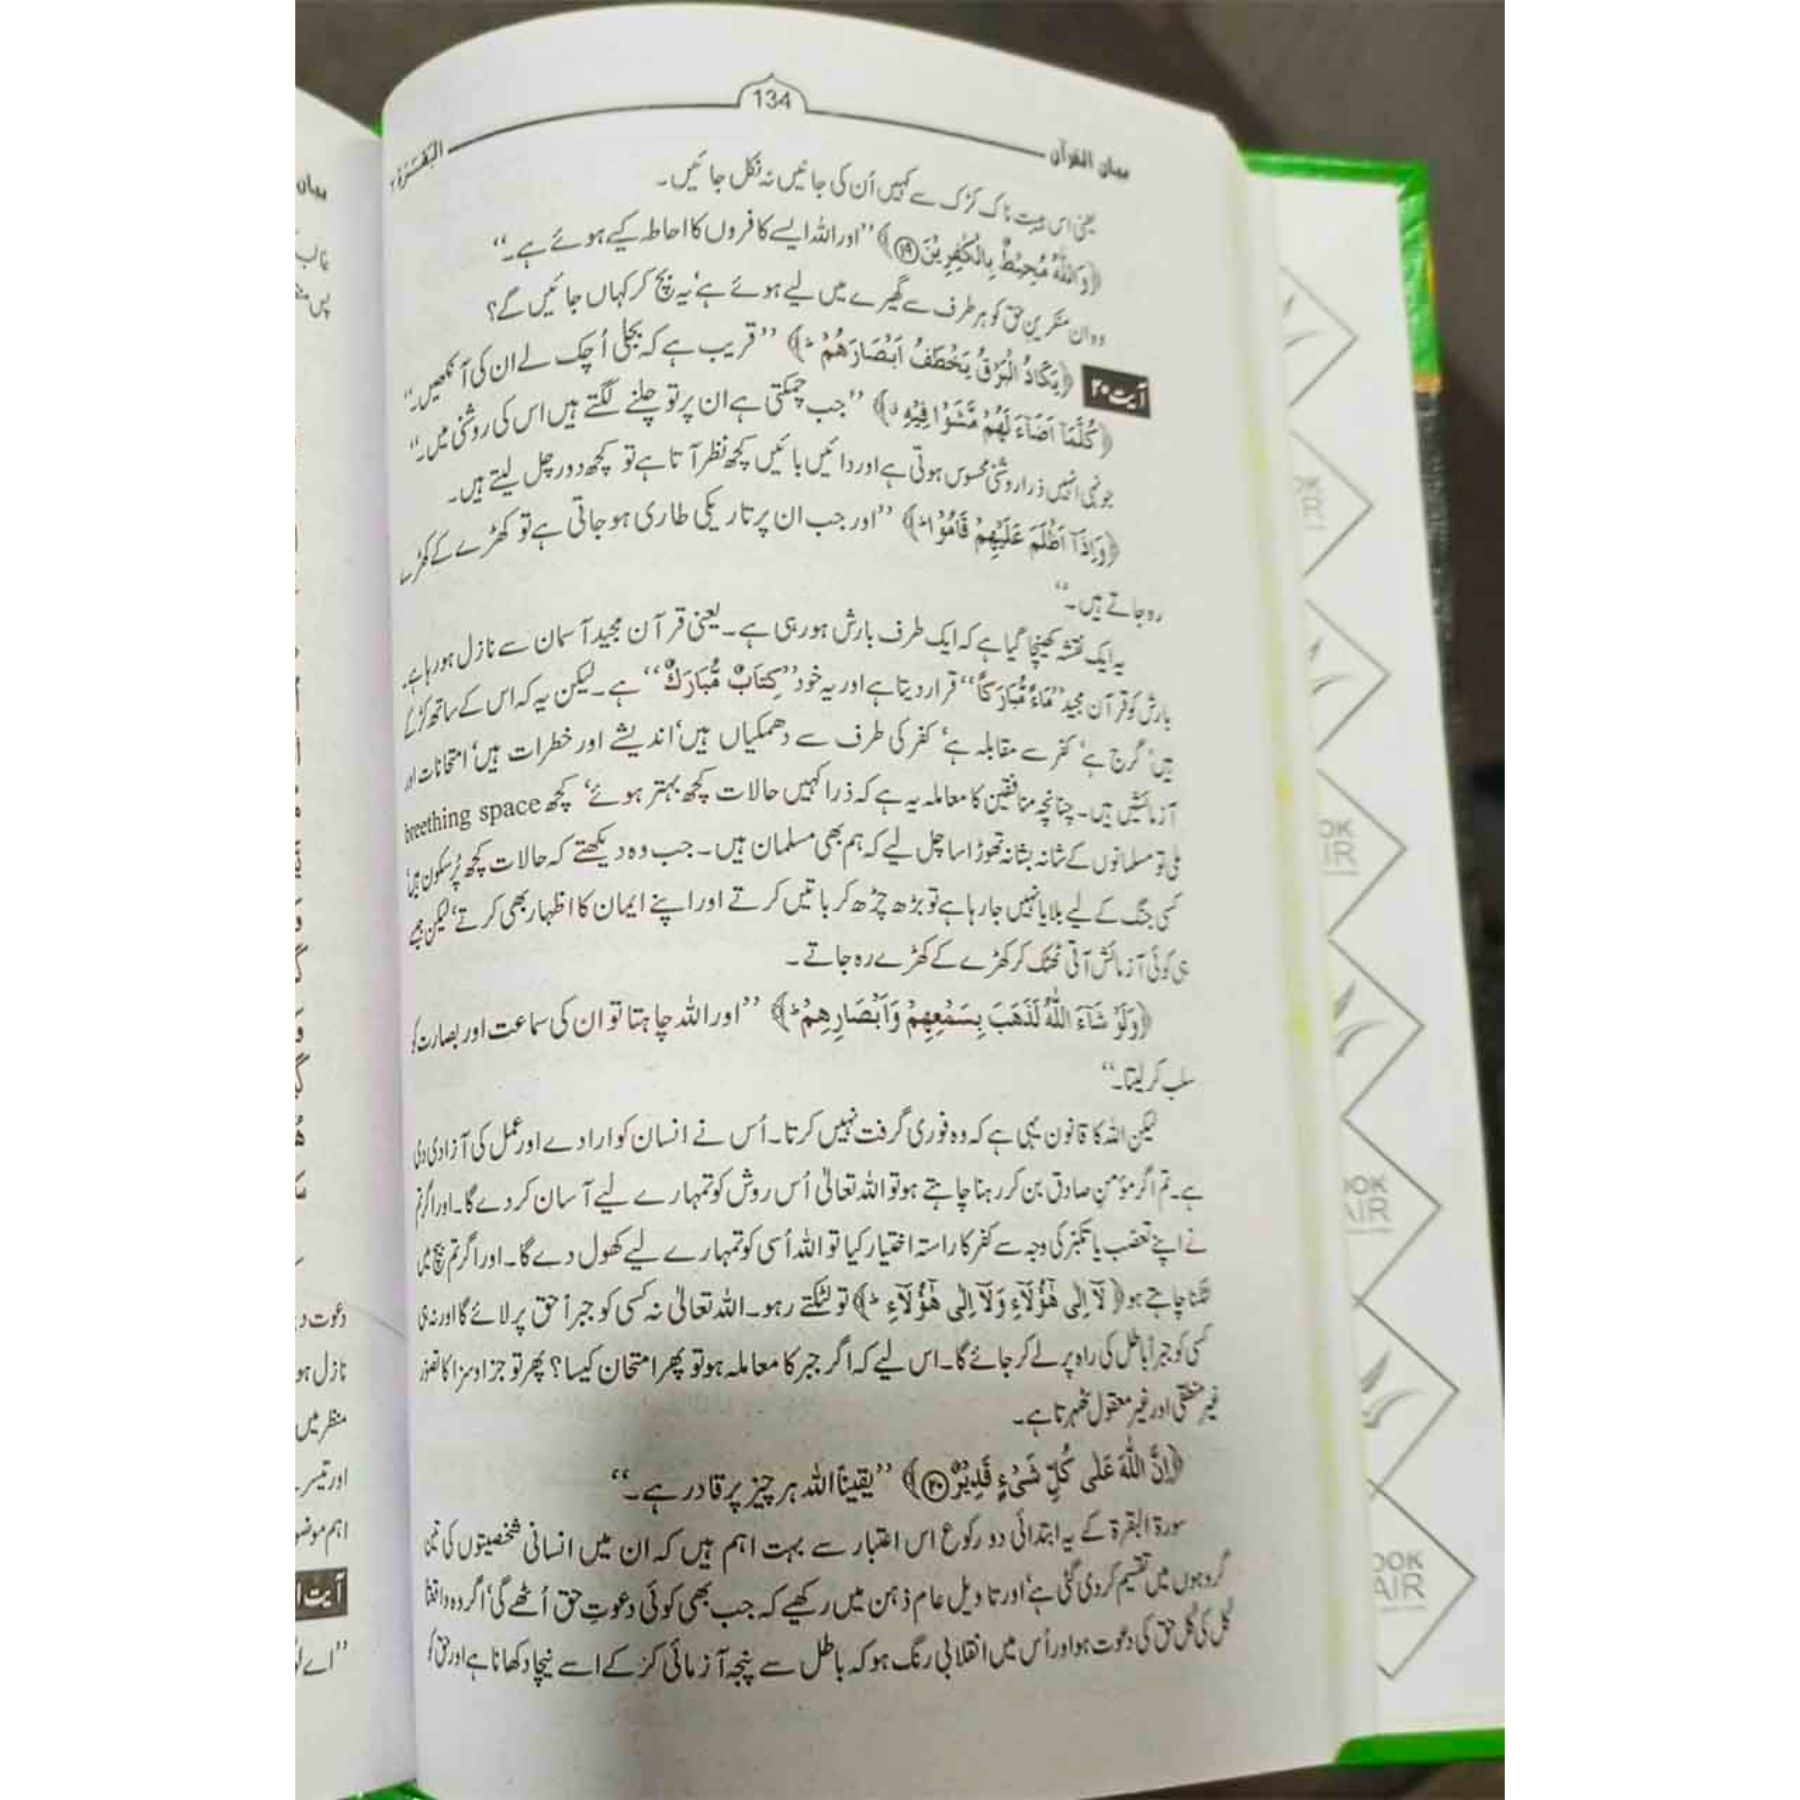 بیان القرآن
134
البقرۃ ۲
یعنی اس ہیبت ناک کڑک سے کہیں اُن کی جانیں نہ نکل جائیں۔
﴿وَاللّٰهُ مُحِيْطٌۢ بِالْكٰفِرِيْنَ ۱۹﴾ ”اور اللہ ایسے کافروں کا احاطہ کیے ہوئے ہے۔“
وہ ان منکرینِ حق کو ہر طرف سے گھیرے میں لیے ہوئے ہے‘ یہ بچ کر کہاں جائیں گے؟
آیت ۲۰ ﴿يَكَادُ الْبَرْقُ يَخْطَفُ اَبْصَارَهُمْ ؕ﴾ ”قریب ہے کہ بجلی اُچک لے ان کی آنکھیں۔“
﴿كُلَّمَاۤ اَضَآءَ لَهُمْ مَّشَوْا فِيْهِ ۙ﴾ ”جب چمکتی ہے ان پر تو چلنے لگتے ہیں اس کی روشنی میں۔“
جونہی انہیں ذرا روشنی محسوس ہوتی ہے اور دائیں بائیں کچھ نظر آتا ہے تو کچھ دور چل لیتے ہیں۔
﴿وَاِذَاۤ اَظْلَمَ عَلَيْهِمْ قَامُوْا ؕ﴾ ”اور جب ان پر تاریکی طاری ہو جاتی ہے تو کھڑے کے کھڑے
رہ جاتے ہیں۔“
یہ ایک نقشہ کھینچا گیا ہے کہ ایک طرف بارش ہو رہی ہے۔ یعنی قرآن مجید آسمان سے نازل ہو رہا ہے۔
بارش کو قرآن مجید ”مَاءً مُّبَارَكًا“ قرار دیتا ہے اور یہ خود ”كِتَابٌ مُّبَارَكٌ“ ہے۔ لیکن یہ کہ اس کے ساتھ کڑکے
ہیں‘ گرج ہے‘ کفر سے مقابلہ ہے‘ کفر کی طرف سے دھمکیاں ہیں‘ اندیشے اور خطرات ہیں‘ امتحانات اور
آزمائشیں ہیں۔ چنانچہ منافقین کا معاملہ یہ ہے کہ ذرا کہیں حالات کچھ بہتر ہوئے‘ کچھ breething space
ملی تو مسلمانوں کے شانہ بشانہ تھوڑا سا چل لیے کہ ہم بھی مسلمان ہیں۔ جب وہ دیکھتے کہ حالات کچھ پُرسکون ہیں‘
کسی جنگ کے لیے بلایا نہیں جا رہا ہے تو بڑھ چڑھ کر باتیں کرتے اور اپنے ایمان کا اظہار بھی کرتے‘ لیکن جیسے
ہی کوئی آزمائش آتی ٹھٹک کر کھڑے کے کھڑے رہ جاتے۔
﴿وَلَوْ شَآءَ اللّٰهُ لَذَهَبَ بِسَمْعِهِمْ وَاَبْصَارِهِمْ ؕ﴾ ”اور اللہ چاہتا تو ان کی سماعت اور بصارت کو
سلب کر لیتا۔“
لیکن اللہ کا قانون یہی ہے کہ وہ فوری گرفت نہیں کرتا۔ اُس نے انسان کو ارادے اور عمل کی آزادی دی
ہے۔ تم اگر مؤمنِ صادق بن کر رہنا چاہتے ہو تو اللہ تعالیٰ اُس روش کو تمہارے لیے آسان کر دے گا۔ اور اگر تم
نے اپنے تعصب یا تکبر کی وجہ سے کفر کا راستہ اختیار کیا تو اللہ اُسی کو تمہارے لیے کھول دے گا۔ اور اگر تم بیچ میں
لٹکنا چاہتے ہو ﴿لَاۤ اِلٰى هٰۤؤُلَآءِ وَلَاۤ اِلٰى هٰۤؤُلَآءِ ؕ﴾ تو لٹکتے رہو۔ اللہ تعالیٰ نہ کسی کو جبراً حق پر لائے گا اور نہ ہی
کسی کو جبراً باطل کی راہ پر لے کر جائے گا۔ اس لیے کہ اگر جبر کا معاملہ ہو تو پھر امتحان کیسا؟ پھر تو جزا و سزا کا تصور
غیر منطقی اور غیر معقول ٹھہرتا ہے۔
﴿اِنَّ اللّٰهَ عَلٰى كُلِّ شَىْءٍ قَدِيْرٌ ۲۰﴾ ”یقیناً اللہ ہر چیز پر قادر ہے۔“
سورۃ البقرۃ کے یہ ابتدائی دو رکوع اس اعتبار سے بہت اہم ہیں کہ ان میں انسانی شخصیتوں کی تین
گروہوں میں تقسیم کر دی گئی ہے‘ اور تاویل عام ذہن میں رکھیے کہ جب بھی کوئی دعوتِ حق اُٹھے گی‘ اگر وہ واقعتاً
کُل کی کُل حق کی دعوت ہو اور اُس میں انقلابی رنگ ہو کہ باطل سے پنجہ آزمائی کر کے اسے نیچا دکھانا ہے اور حق کو
دعوت
نازل ہو
منظر میں
اور تیسر
اہم موضو
آیت